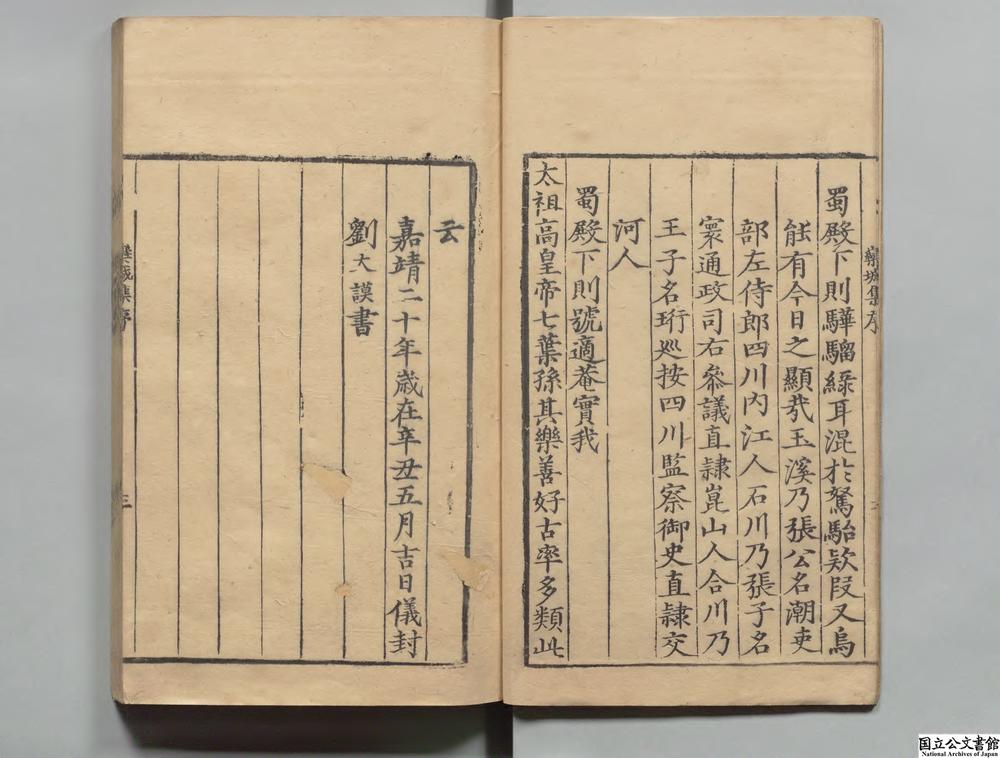 蜀殿下則驊騮綠耳混於駑駘欵叚又烏
能有今日之顯㢤玉溪乃張公名潮吏
部左侍郎四川內江人石川乃張子名
寰通政司右叅議直隷崑山人合川乃
王子名珩廵按四川監察御史直隷交
河人
蜀殿下則號適菴實我
太祖高皇帝七葉孫其樂善好古率多類此
欒城集序
云
嘉靖二十年歲在辛丑五月吉日儀封
劉大謨書
欒城集序
三
国立公文書館
National Archives of Japan